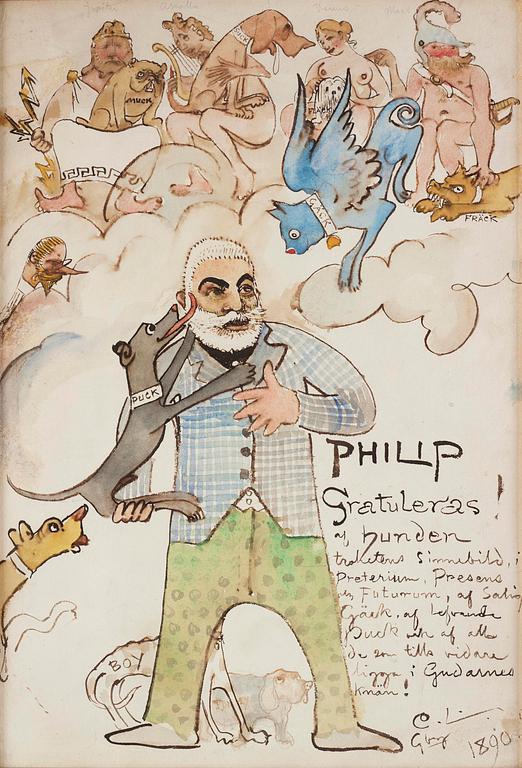 Jupiter Apollo Venus Mars
MUCK
GÄCK
FRÄCK
PUCK
BOY
PHILIP
Gratuleras!
af hunden
trohetens Sinnebild, i
Preterium, Presens
och Futurum, af Salig
Gäck, af lefvande
Puck och af alla
de som tills vidare
ligga i Gudarnes
knän!
C. L.
Grez 1890